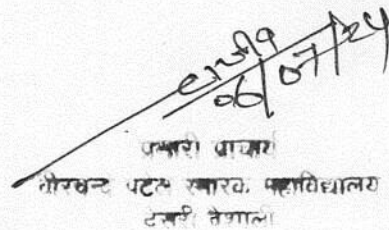 राजीव
06/07/24
प्रभारी प्राचार्य
वीरचन्द पटेल स्मारक महाविद्यालय
देसरी वैशाली